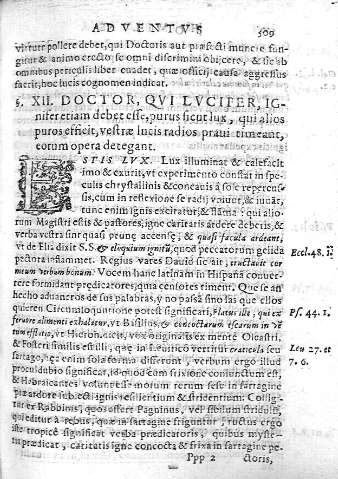 ADVENTVS 509
virtute pollere debet, qui Doctoris aut præfecti munere fun-
gitur & animo erecto se omni discrimini obijcere, & sic ab
omnibus periculis liber euadet, quæ officij causa aggressus
facrit, hoc lucis cognomen indicat.
§. XII. DOCTOR, QVI LVCIFER, IG-
nifer etiam debet esse, purus sicut lux, qui alios
puros efficit, vestræ lucis radios praui timeant,
eorum opera detegant.
ESTIS LVX. Lux illuminat & calefacit
imo & exurit, vt experimento constat in spe-
culis chrystallinis & concauis à sole repercus-
sis, cum in reflexione se radij
tunc enim ignis excitatur, & flāma: qui alio-
rum Magistri estis & pastores, igne caritatis ardere debetis, &
verba vestra sint quasi prunæ accensæ, & quasi facula ardeant,
vt de Elia dixit S.S. & eloquium ignitū, quod peccatorum gelida
pectora inflammet. Regius vates Dauid sic ait, eructauit cor
meum verbum bonum. Vocem hanc latinam in Hispanā conuer-
tere formidant prædicatores, quia censores timent. Que se an
hecho aduaneros de sus palabras, y no passa sino las que ellos
quieren
feruore alimenti exhalatur, vt Basilius, & concoctarum escarum in vē
vt Hieron. licit, vox originalis ex mente Oleastri,
& Fosteri similis est
sartago, hęc enim sola forma differunt, verbum ergo illud
significat, id quod cum frixione coniunctum est,
& Hebraicantes volunt esse motum rerum sese in sartagine
præ ardore subiecti ignis resilientium & stridentium: Collig-
tur ex Rabbinis, quos affert Pagninus, vel sibilum stridulū,
qui editur à rebus, quæ in sartagine friguntur; ructus ergo
iste tropicè significat verba prædicatoris, quibus myste-
prædicat, caritatis igne concocta & frixa in sartagine pe-
Ppp 2 ctoris,
Eccl. 48.
Ps. 44. 1.
Leu 27. et
7. 6.